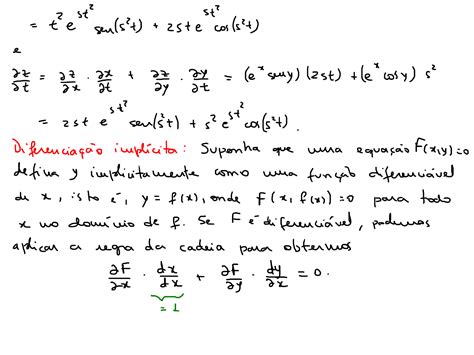 = t² e^{st²} sen(s²t) + 2st e^{st²} cos(s²t)
e
∂z/∂t = ∂z/∂x · ∂x/∂t + ∂z/∂y · ∂y/∂t = (e^x sen y)(2st) + (e^x cos y) s²
= 2st e^{st²} sen(s²t) + s² e^{st²} cos(s²t).
Diferenciação implícita: Suponha que uma equação F(x,y)=0
defina y implicitamente como uma função diferenciável
de x, isto é, y = f(x), onde F(x, f(x))=0 para todo
x no domínio de f. Se F é diferenciável, podemos
aplicar a regra da cadeia para obtermos
∂F/∂x · dx/dx + ∂F/∂y · dy/dx = 0.
= 1